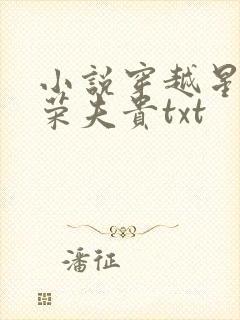 小說穿越星
荣夫貴txt
潘征